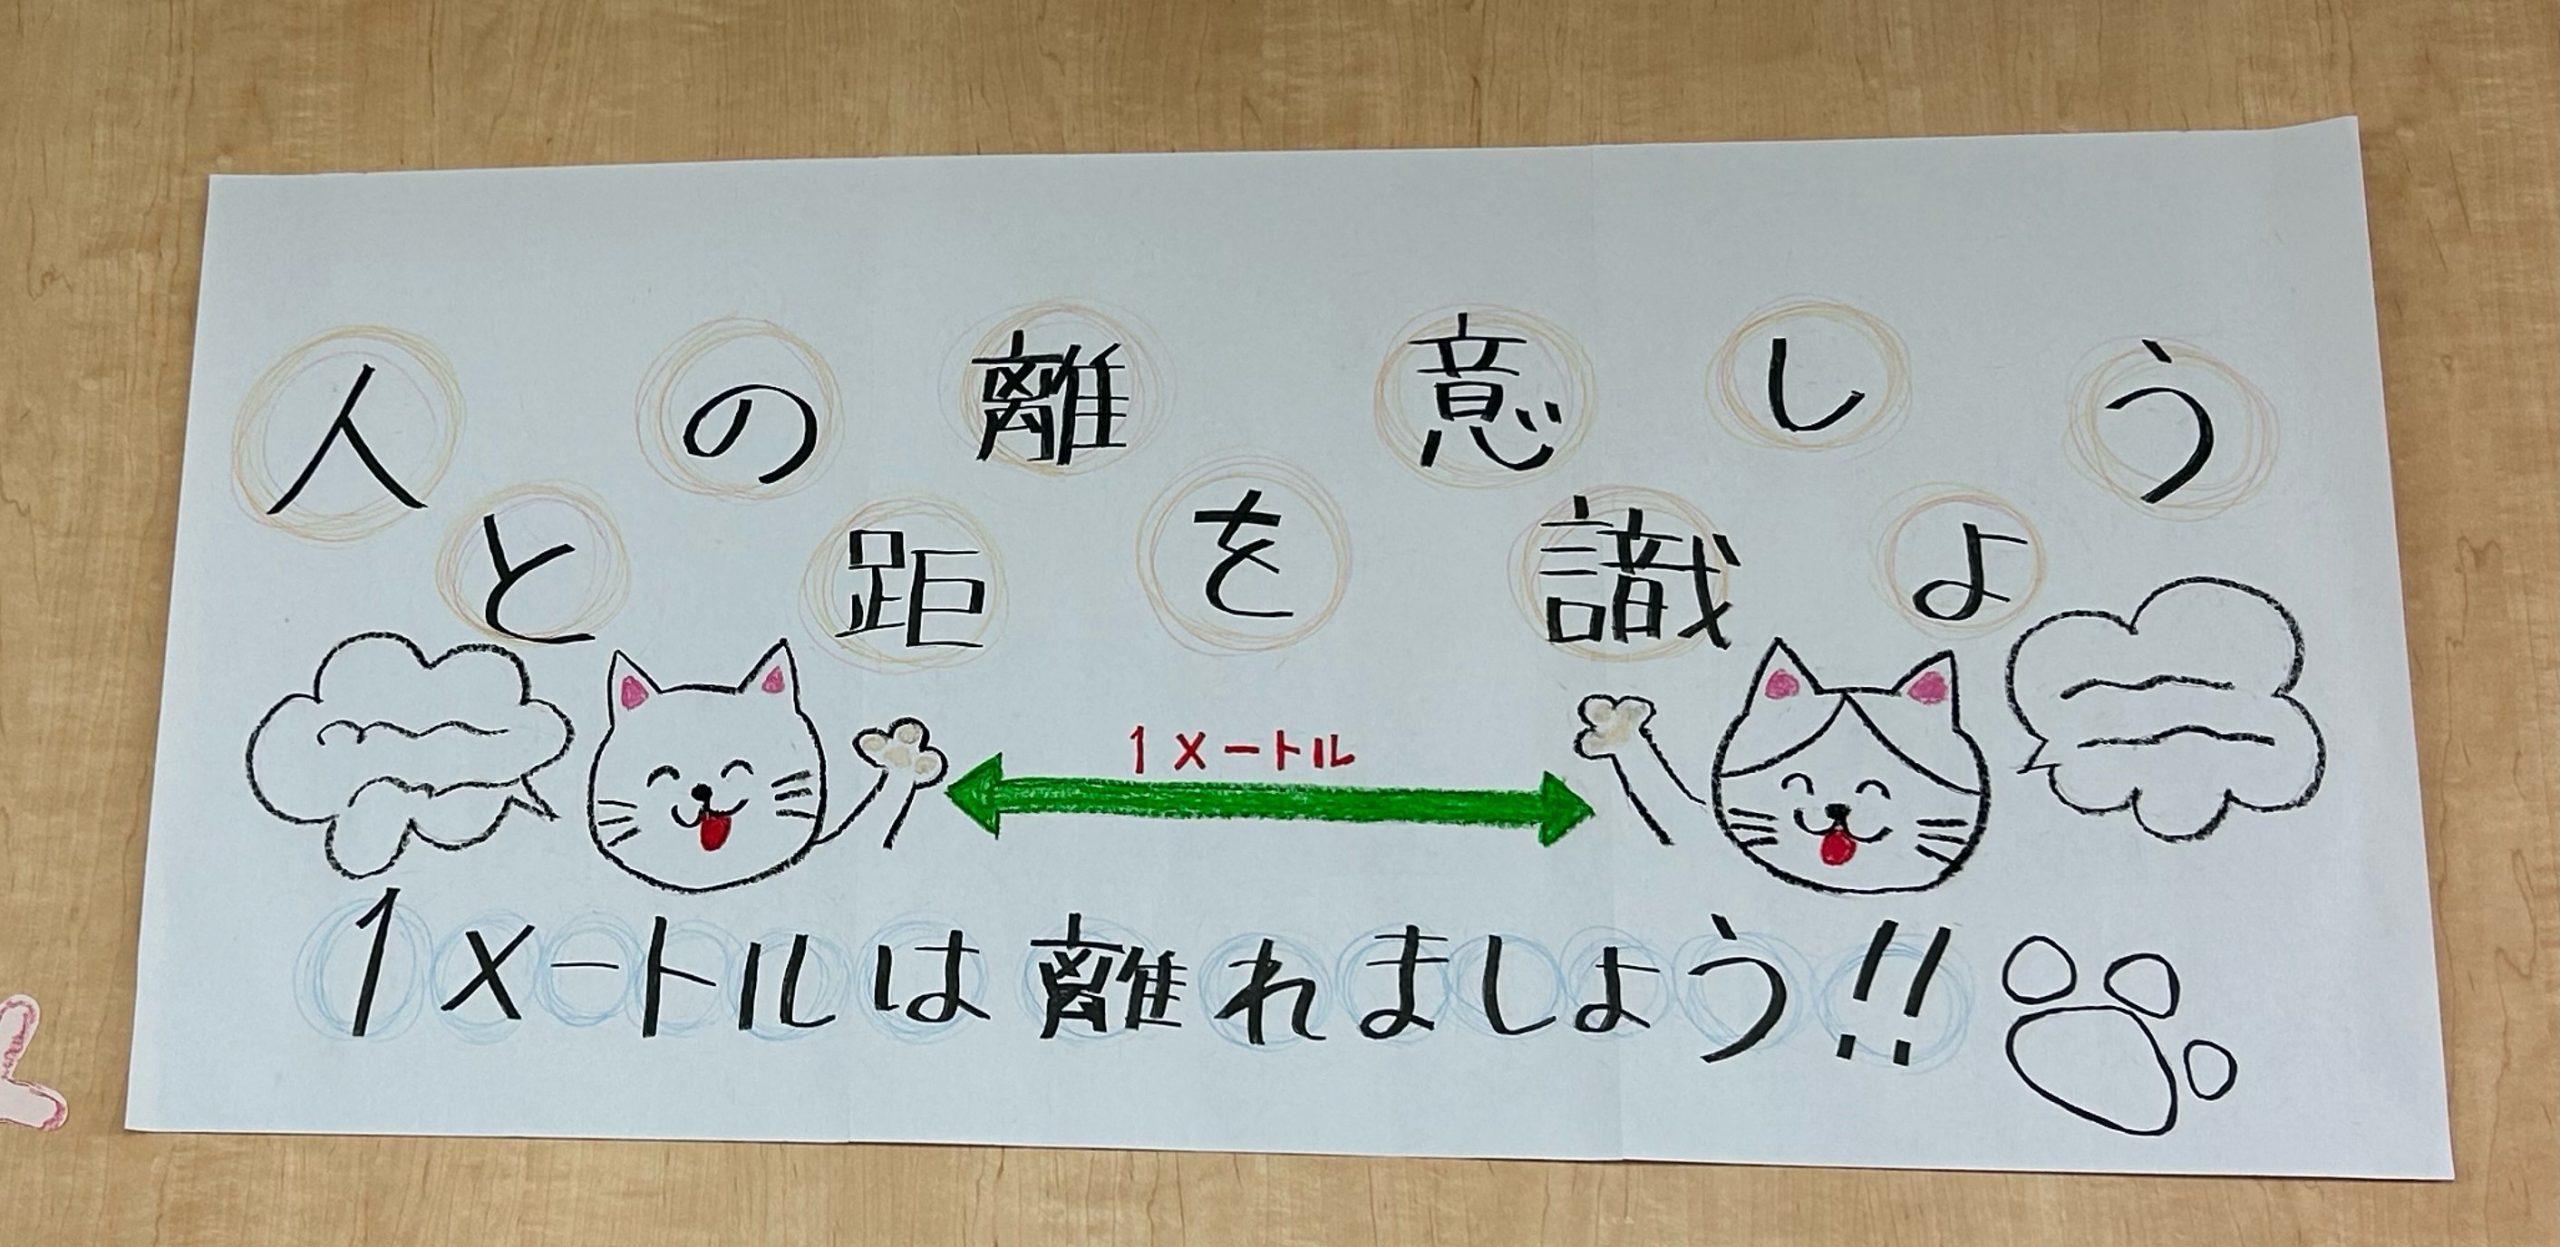 人との距離を意識しよう
1メートル
1メートルは離れましょう!!